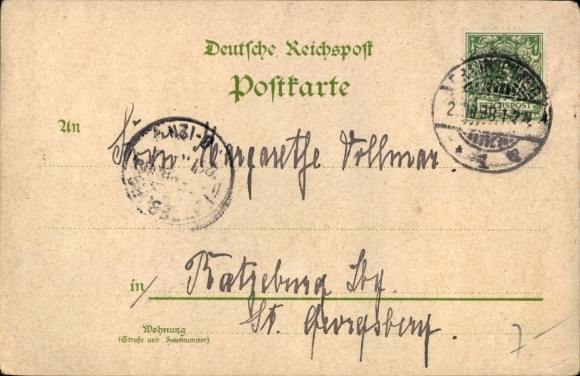 Deutsche Reichspost
Postkarte
REICHSPOST
An
Frau Margarethe Vollmar.
in Ratzeburg Lbg.
St. Georgsberg.
Wohnung
(Straße und Hausnummer)
7-